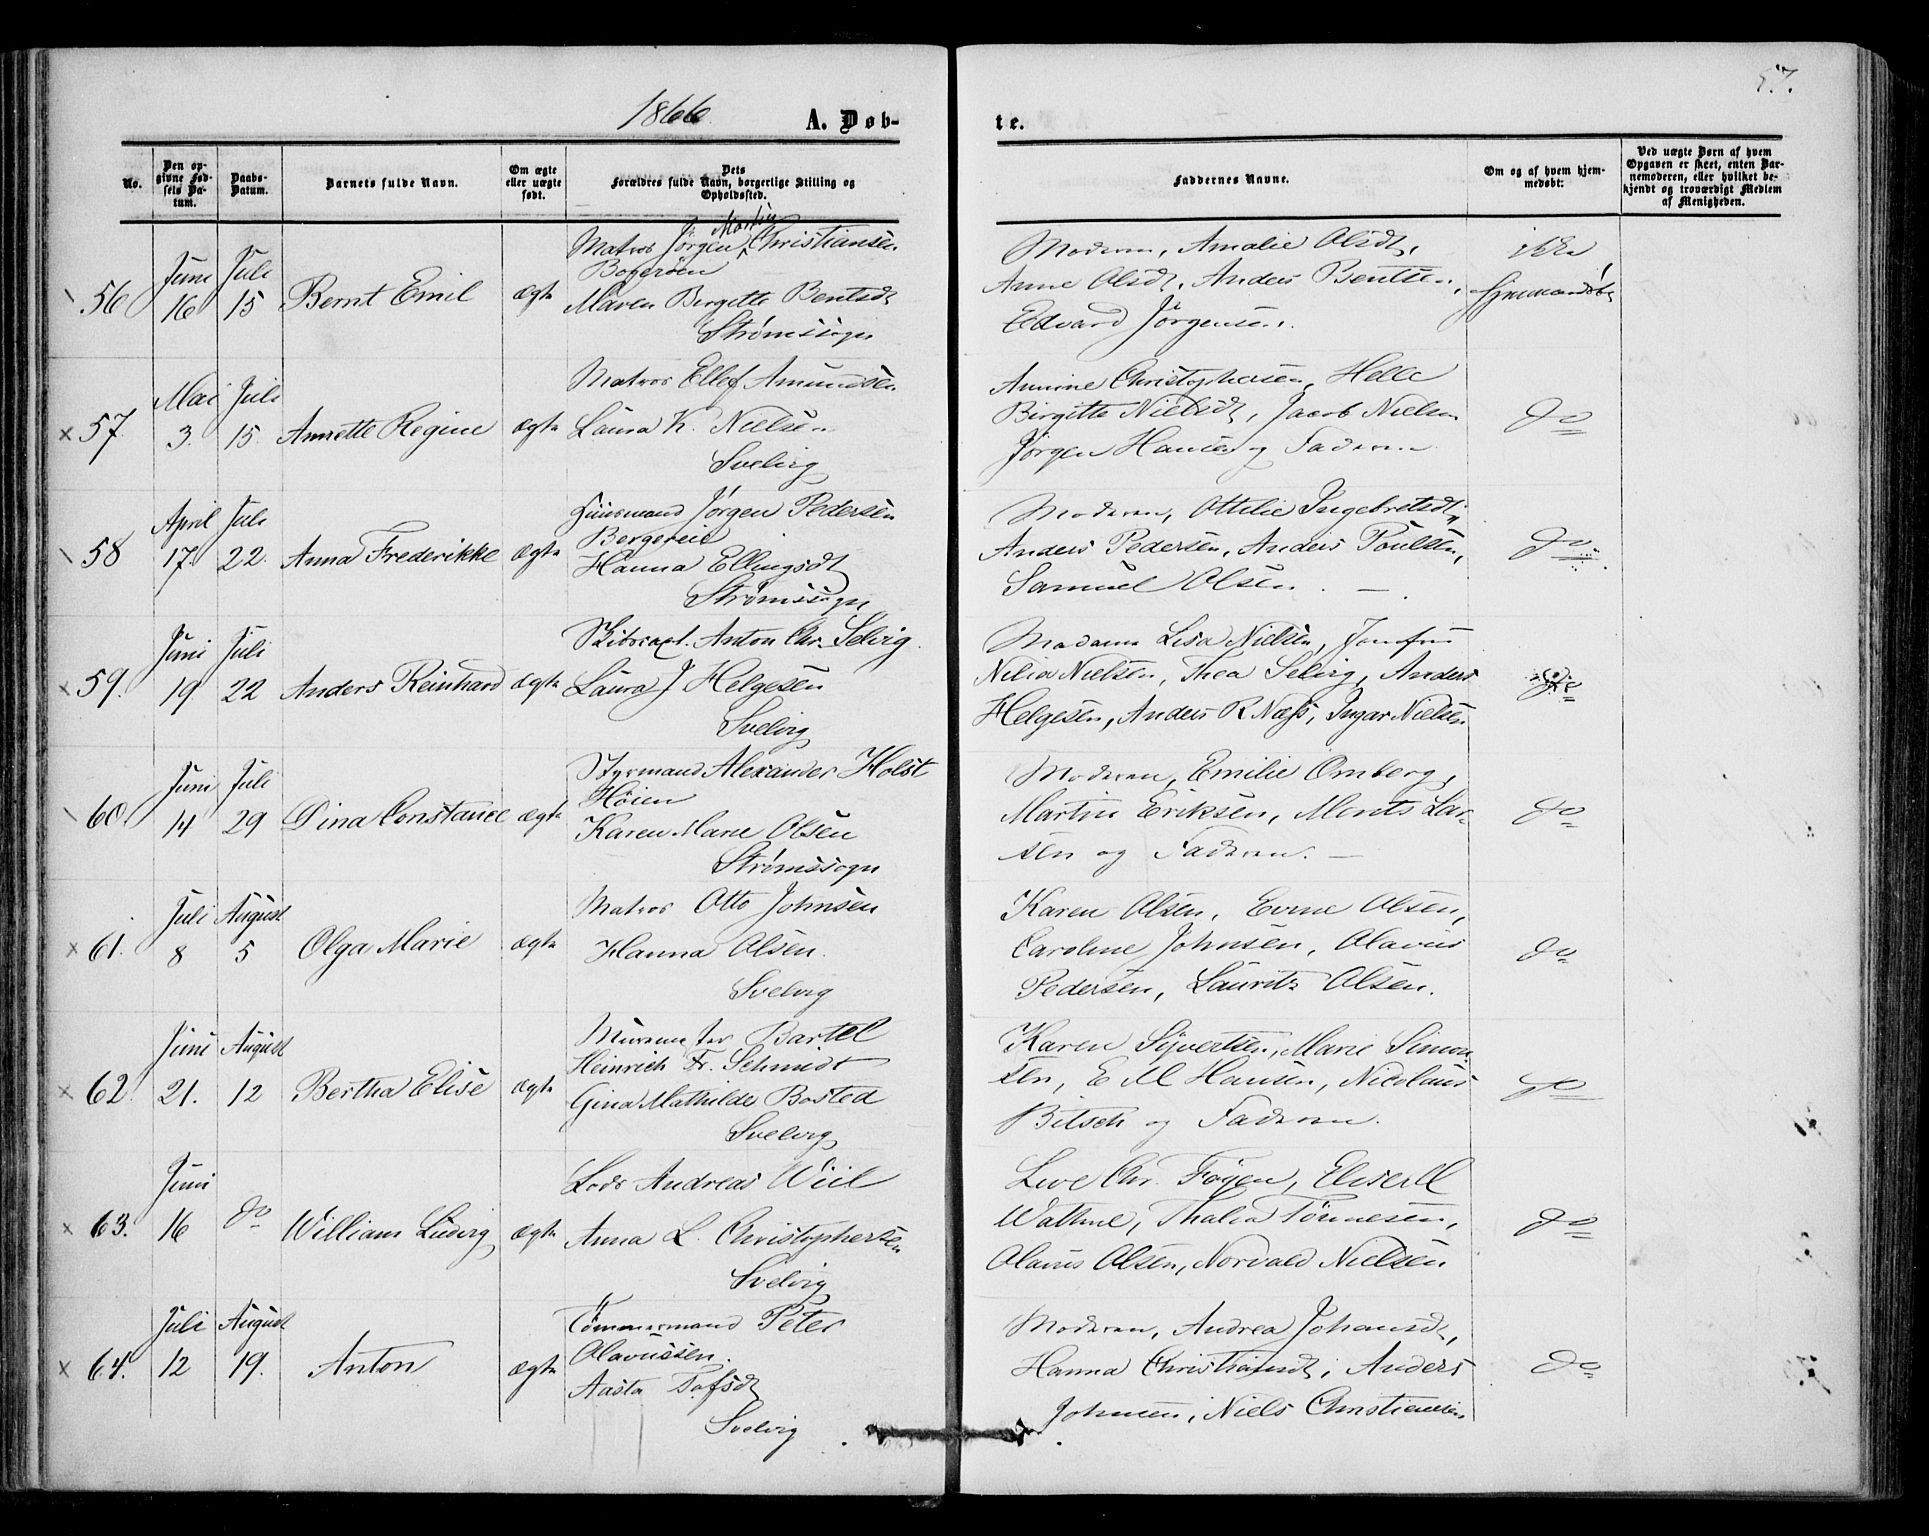 57.
1866
A. Døb-
te.
No.
Den op-
givne Fød-
sels Da-
tum.
Daabs-
Datum.
Barnets fulde Navn.
Om ægte
eller uægte
født.
Dets
Forældres fulde Navn, borgerlige Stilling og
Opholdssted.
Faddernes Navne.
Om og af hvem hjem-
medøbt.
Ved uægte Børn af hvem
Opgaven er skeet, enten Bar-
nemoderen, eller hvilket be-
kjendt og troværdigt Medlem
af Menigheden.
56
Juni
16
Juli
15
Bernt Emil
ægte
Martin
Matros Jørgen Christiansen
Bogerøen
Maren Birgitte Bentsdt
Strømssogn
Moderen, Amalie Olsdt,
Anne Olsdt, Anders Bentsen,
Edvard Jørgensen.
ikke
hjemmedøbt
57.
Mai
3.
Juli
15.
Annette Regine
ægte
Matros Ellef Amundsen
Laura K. Nielsen
Svelvig
Annine Christophersen, Helle
Birgitte Nielsdt, Jacob Nielsen
Jørgen Hansen og Faderen
do
58
April
17.
Juli
22.
Anna Frederikke
ægte
Huusmand Jørgen Pedersen
Bergereie
Hanna Ellingsdt
Strømssogn
Moderen, Ottilie Ingebretsdt,
Anders Pedersen, Anders Poulsen,
Samuel Olsen. —
do
59.
Juni
19.
Juli
22
Anders Reinhard
ægte
Skibscapt. Anton Chr. Selvig
Laura J Helgesen
Svelvig
Madame Lisa Nielsen, Jomfru
Nilia Nielsen, Thea Selvig, Anders
Helgesen, Anders R Næss, Ingar Nielsen
do
60.
Juni
14
Juli
29
Dina Constance
ægte
Styrmand Alexander Holst
Høien
Karen Marie Olsen
Strømssogn
Moderen, Emilie Ornberg,
Martin Eriksen, Monts Lar-
sen og Faderen. —
do
61.
Juli
8
August
5
Olga Marie
ægte
Matros Otto Johnsen
Hanna Olsen.
Svelvig
Karen Olsen, Evine Olsen,
Caroline Johnsen, Olavus
Pedersen, Lauritz Olsen.
do
62.
Juni
21.
August
12
Bertha Elise
ægte
Murmester Bartel
Heinrich Fr. Schmidt
Gina Mathilde Bosted
Svelvig
Karen Syvertsen, Marie Simon-
sen, E M Hansen, Nicolaus
Bitsch og Faderen.
do
63.
Juni
16
do
William Ludvig
ægte
Lods Andreas Wiil
Anna L. Christophersen
Svelvig
Live Chr. Føyen, Elise M
Wathne, Thalia Tønnesen,
Olaus Olsen, Norvald Nielsen
do
64.
Juli
12
August
19.
Anton
ægte
Tømmermand Peter
Olavussen.
Aasta Tofsdt
Svelvig
Moderen, Andrea Johansdt,
Hanna Christiansdt, Anders
Johnsen, Niels Christiansen
do